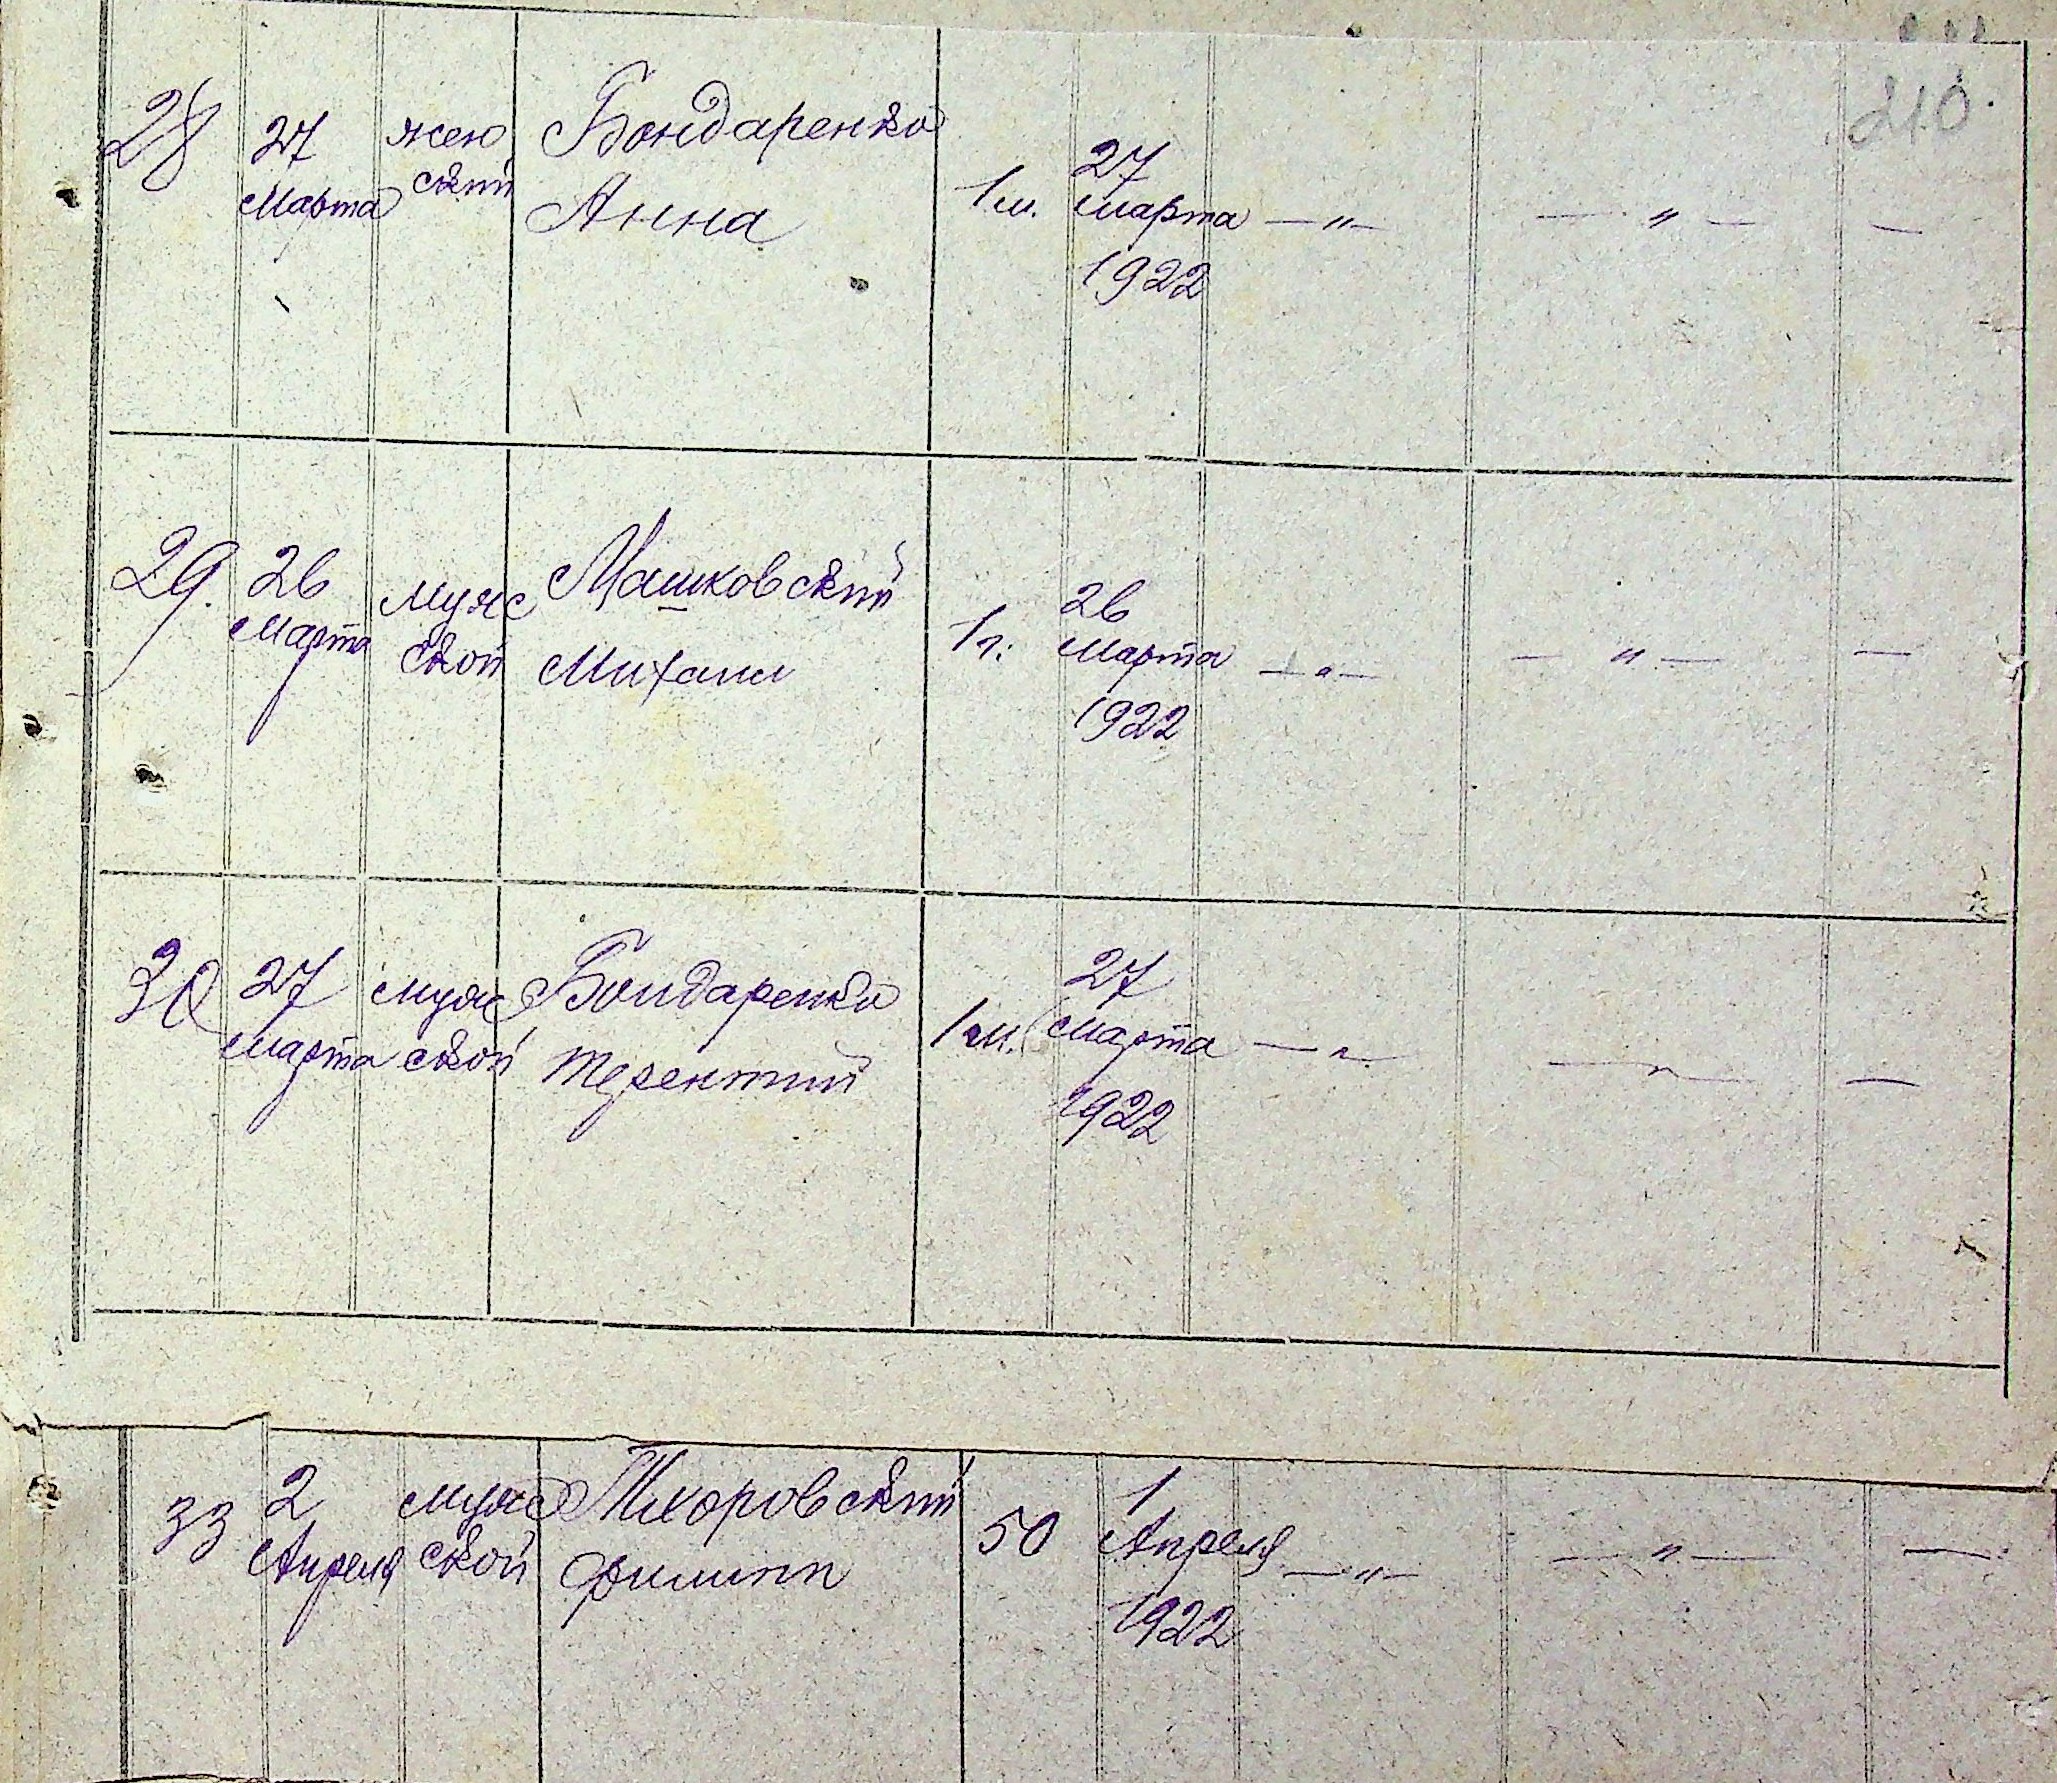 210
28 27 Марта женский Бондаренко Анна 1 м. 27 марта 1922 — „ — — „ — —
29. 26 Марта мужской Машковский Михаил 1 г. 26 Марта 1922 — „ — — „ — —
30 27 марта мужской Бондаренко Терентий 1 м. 27 Марта 1922 — „ — — „ — —
33 2 Апреля мужской Тхоровский Филипп 50 1 Апреля 1922 — „ — — „ — —